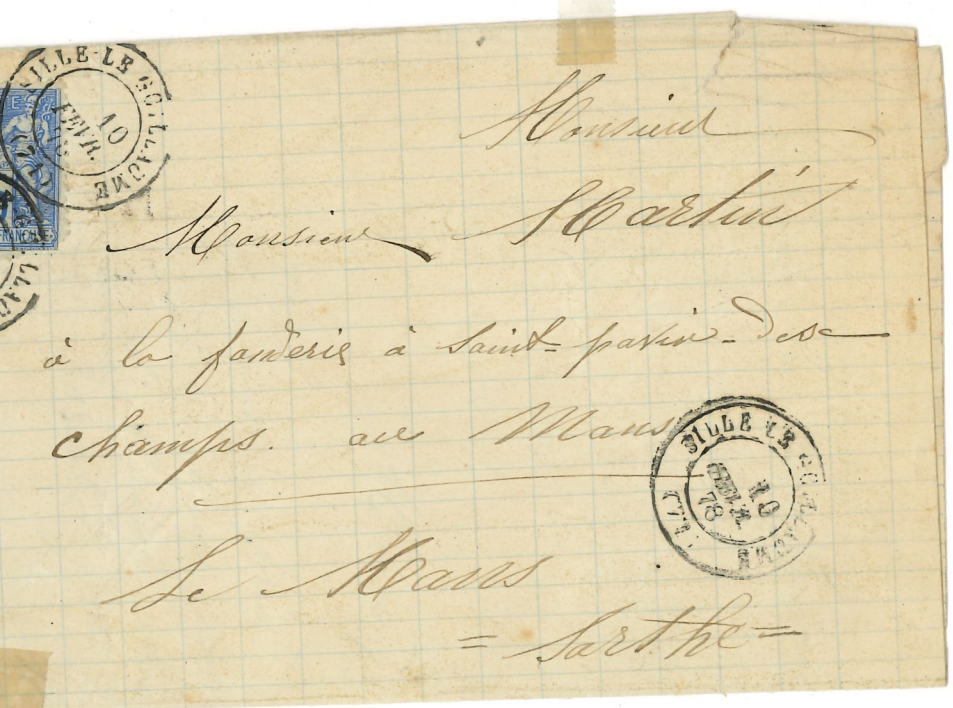 SILLE-LE-GUILLAUME
10
FEVR.
(71)
Monsieur
Monsieur Martin
à la fonderie à Saint-pavin-des
champs. au Mans
SILLE-LE-GUILLAUME
10
FEVR.
78
(71)
Le Mans
= Sarthe =